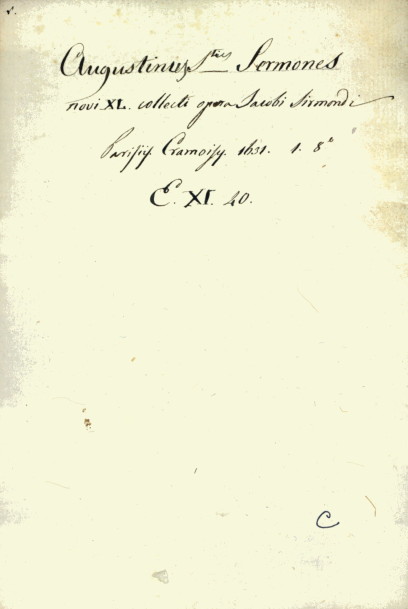 Augustinus Stus Sermones
novi XL. collecti opera Jacobi Sirmondi
Parisijs. Cramoisy. 1631. 1. 8°
E. XI. 40.
C